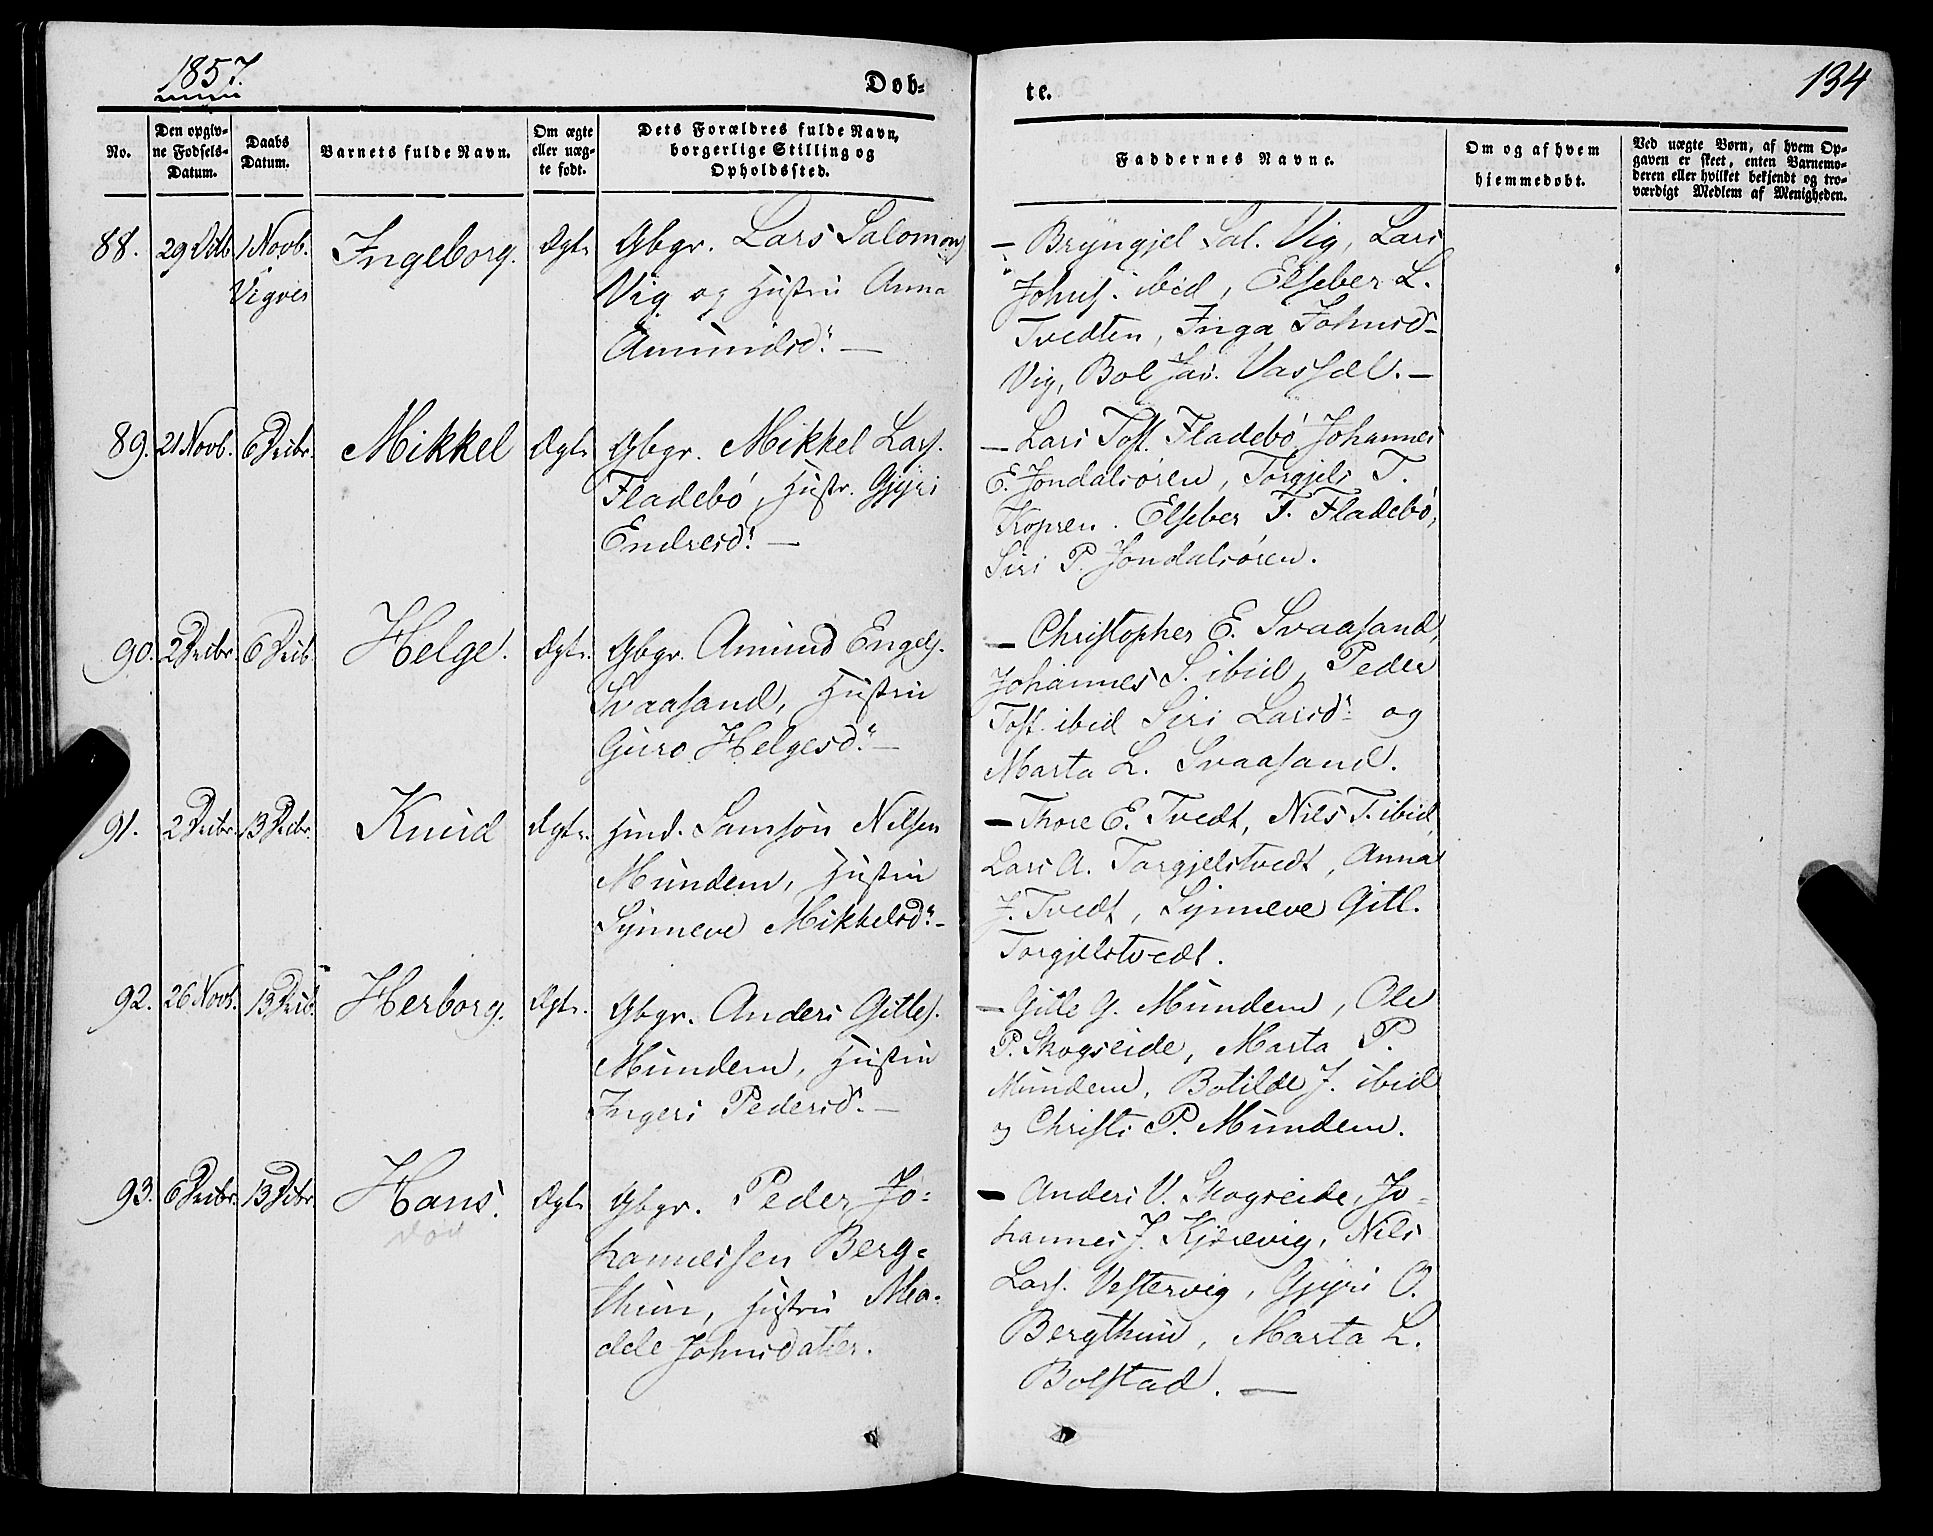 1857.
Døb-
te.
134
No.
Den opgiv-
ne Fødsels-
Datum.
Daabs
Datum.
Barnets fulde Navn.
Om ægte
eller uæg-
te født.
Dets Forældres fulde Navn,
borgerlige Stilling og
Opholdssted.
Faddernes Navne.
Om og af hvem
hjemmedøbt.
Ved uægte Børn, af hvem Op-
gaven er skeet, enten Barnemo-
deren eller hvilket bekjendt og tro-
værdigt Medlem af Menigheden.
88.
29 Octb.
1 Novb.
Vigøer
Ingeborg.
Ægte
Gbgr. Lars Salomons
Vig og Hustru Anna
Amundsd. —
— Bryngjel Sal. Vig, Lars
Johns. ibid, Elseber L.
Tvedten, Inga Johnsd.
Vig, Bol Jac. Vassel. —
89.
21 Novb.
6 Decbr.
Mikkel
Ægte
Gbgr. Mikkel Lars.
Fladebø, Hustr. Gjyri
Endresd. —
— Lars Tost. Fladebø Johannes
E. Jondalsøren, Torgjels T.
Kopren. Elseber T. Fladebø,
Siri P. Jondalsøren.
90.
2 Decbr.
6 Decb.
Helge.
Ægte.
Gbgr. Amund Engels.
Svaasand, Hustru
Guro Helgesd. —
— Christopher E. Svaasand,
Johannes S. ibid, Peder
Tost. ibid Siri Larsd. og
Marta L. Svaasand.
91.
2 Decbr.
13 Decbr.
Knud
Ægte.
Huud. Samson Nilsen
Mundem, Hustru
Synneve Mikkelsd. —
— Thore E. Tvedt, Nils T. ibid,
Lars A. Torgjelstvedt, Anna
J. Tvedt, Synneve Gitl.
Torgjelstvedt.
92.
26 Novb.
13 Decb.
Herborg.
Ægte.
Gbgr. Anders Gitles.
Mundem, Hustru
Ingeri Pedersd. —
— Gitle G. Mundem, Ole
P. Skogseide, Marta P.
Mundem, Botilde J. ibid
og Christi P. Mundem.
93.
6 Decbr.
13 Decbr.
Hans.
død
Ægte
Gbgr. Peder Jo-
hannessen Berg-
thun, Hustru Ma-
dele Johnsdatter.
— Anders V. Skogseide, Jo-
hannes J. Kjerevig, Nils
Lars. Vestervig, Gjyri O.
Bergthun, Marta L.
Bolstad. —